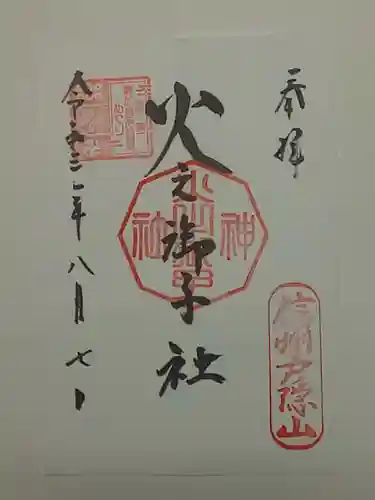 奉拝
信州戸隠山
火之御子社
神社
令和三年八月七日